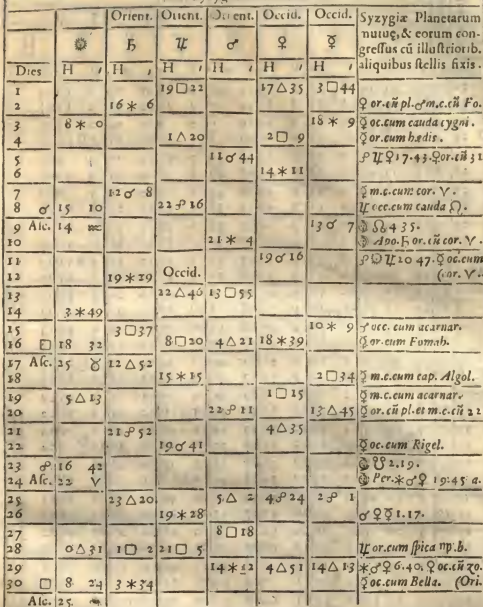 Orient. Orient. Orient. Occid. Occid. Syzygiæ Planetarum
☉ ♄ ♃ ♂ ♀ ☿ mutuę, & eorum con-
gressus cū illustriorib.
Dies H ′ H ′ H ′ H ′ H ′ H ′ aliquibus stellis fixis.
1 19 □ 22 17 △ 35 3 □ 44
2 16 ✶ 6 ♀ or. cū pl. ♂ m.c. cū Fo.
3 8 ✶ 0 18 ✶ 9 ☿ oc. cum cauda cygni.
4 1 △ 20 2 □ 9 ☿ or. cum hædis.
5 11 ☌ 44 ☍ ♃ ♀ 17.43. ♀ or. cū 31
6 14 ✶ 11
7 12 ☌ 8 ☿ m.c. cum cor. ♈.
8 ☌ 15 10 22 ☍ 16 ♃ occ. cum cauda ♌.
9 Asc. 14 ♒ 13 ☌ 7 ☽ ☊ 4 35.
10 21 ✶ 4 ☽ Apo. ♄ or. cū cor. ♈.
11 19 ☌ 16 ☍ ☉ ♃ 20 47. ☿ oc. cum
12 19 ✶ 19 Occid. (cor. ♈.
13 22 △ 46 13 □ 55
14 3 ✶ 49
15 3 □ 37 10 ✶ 9 ♂ occ. cum acarnar.
16 □ 18 32 8 □ 20 4 △ 21 18 ✶ 39 ☿ or. cum Fomah.
17 Asc. 25 ♉ 12 △ 52
18 15 ✶ 15 2 □ 34 ☿ m.c. cum cap. Algol.
19 5 △ 13 1 □ 15 ☿ m.c. cum acarnar.
20 22 ☍ 11 13 △ 45 ☿ or. cū pl. et m.c. cū 22
21 21 ☍ 52 4 △ 35
22 19 ☌ 41 ☿ oc. cum Rigel.
23 ☍ 16 42 ☽ ☋ 2.19.
24 Asc. 22 ♈ ☽ Per. ✶ ♂ ♀ 19:45 a.
25 23 △ 20 5 △ 2 4 ☍ 24 2 ☍ 1
26 19 ✶ 28 ☌ ♀ ☿ 1.17.
27 8 □ 18
28 0 △ 31 1 □ 2 21 □ 5 ♃ or. cum spica ♍. b.
29 14 ✶ 12 4 △ 51 14 △ 13 ✶ ♂ ♀ 6.40. ♀ oc. cū zo.
30 □ 8 24 3 ✶ 34 ☿ oc. cum Bella. (Ori.
Asc. 25